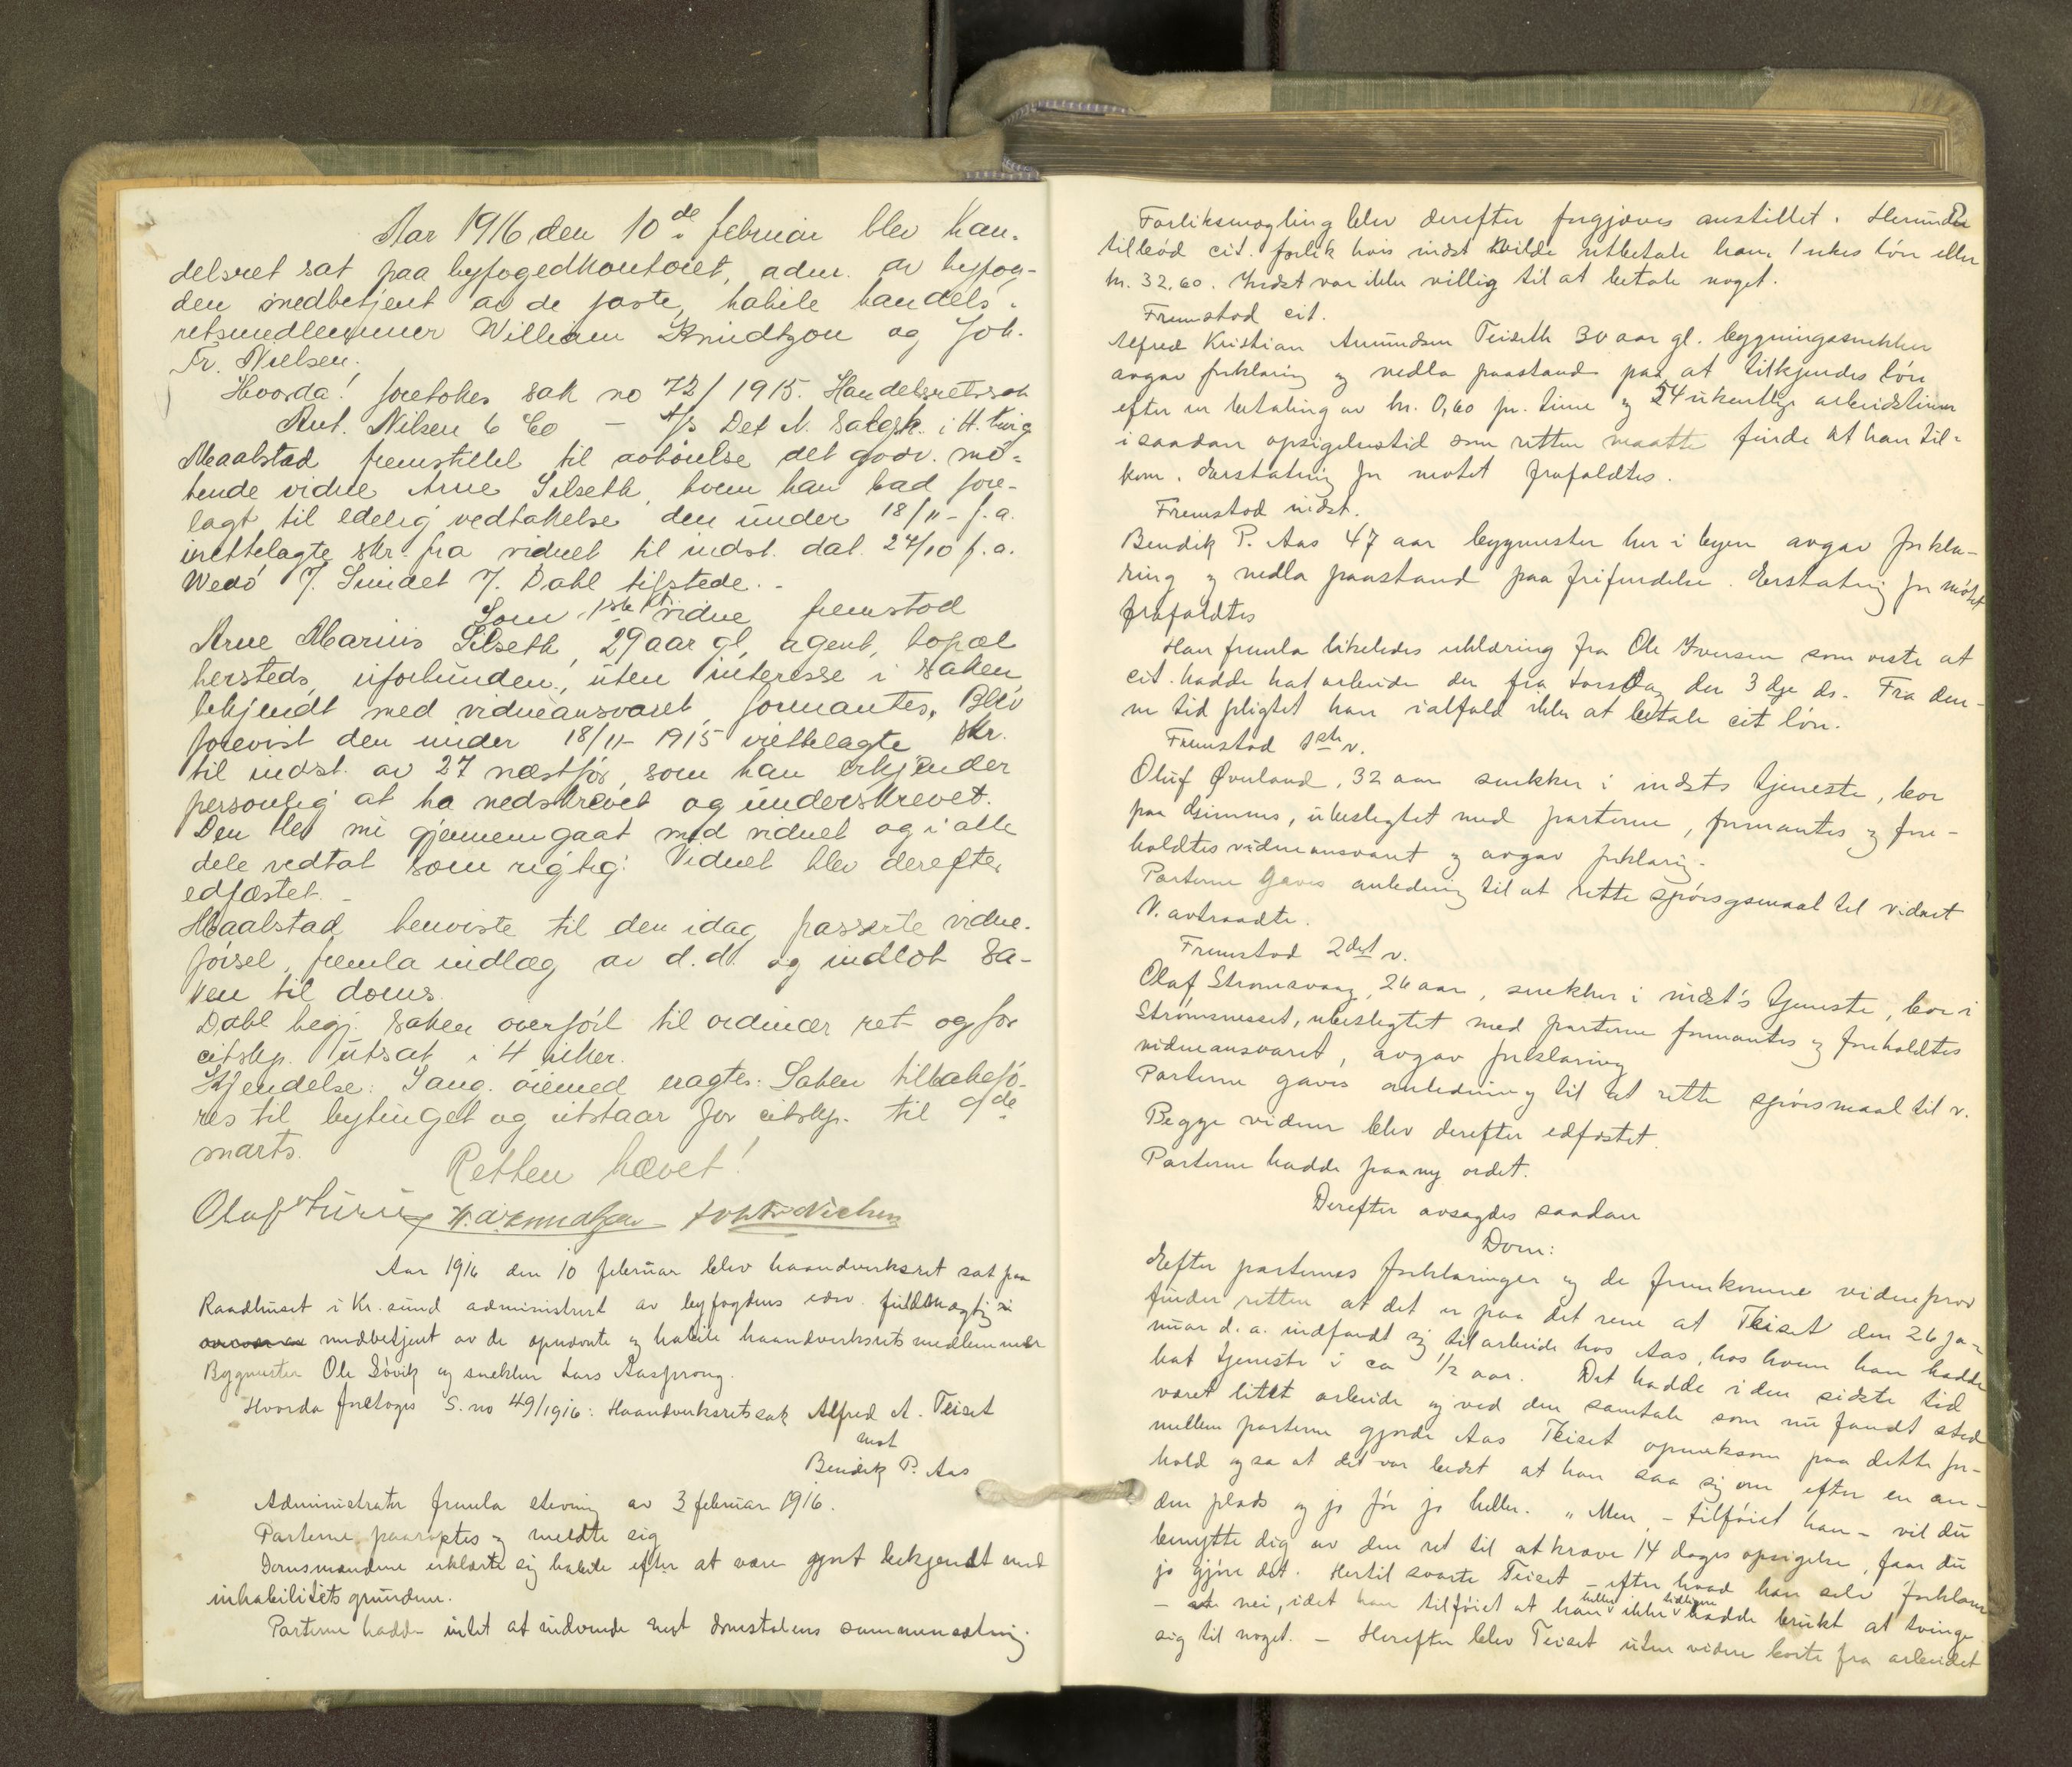 Aar 1916 den 10de februar blev han-
delsret sat paa byfogedkontoret, adm. av byfog-
den medbetjent av de faste, habile handels-
retsmedlemmer William Knudtzon og Joh.
Fr. Nielsen.
Hvorda! foretokes sak no 72/1915. Handelsretssak
Ant. Nilsen & Co - A/s Det N. Salgsk. i H.
Maalstad fremstillet til avhörelse det godv. mö-
tende vidne Arne Silseth, hvem han bad fore-
lagt til edelig vedtakelse den under 18/11 - f.a.
irettelagte skr. fra vidnet til indst. dat. 27/10 f.a.
Wedö f. Smidet f. Dahl tilstede. -
Som 1ste vidne fremstod
Arne Marius Silseth, 29 aar gl, agent, bopæl
hersteds, uforbunden, uten interesse i saken
bekjendt med vidneansvaret, formantes. Blev
forevist den under 18/11 - 1915 irettelagte skr.
til indst. av 27 næstfór, som han erkjender
personlig at ha nedskrevet og underskrevet.
Den blev nu gjennemgaat med vidnet og i alle
dele vedtat som rigtig. Vidnet blev derefter
edfæstet. -
Maalstad henviste til den idag passerte vidne-
försel, fremla indlæg av d.d. og indlot sa-
ken til doms.
Dahl begj. saken overfört til ordinær ret og for
citskp. utsat i 4 uker.
Kjendelse: I ang. öiemed eragtes: Saken tilbakefö-
res til bytinget og utstaar for citskp. til 9de
marts.
Retten hævet!
Olaf Joh Fr Nielsen
Aar 1916 den 10 februar blev haandverksret sat paa
Raadhuset i Kr.sund administrert av byfogdens edsv. fuldmægtig
medbetjent av de opnævnte og habile haandverksrets medlemmer
Bygmester Ole Sövik og snekker Lars Aasprong.
Hvorda foretoges S. no 49/1916: Haandverksretssak Alfred A. Teiset
mot
Bendik P. Aas
Administrator fremla stevning av 3 februar 1916.
Parterne paaroptes og meldte sig
Domsmændene erklærte sig habile efter at være gjort bekjendt med
inhabilitets grundene.
Parterne hadde intet at indvende mot domstolens sammensætning.
Forliksmægling blev derefter forgjæves anstillet. Herunder
tilbød cit. forlik hvis indst vilde utbetale ham 1 ukes lön eller
kr. 32.60. Indst var ikke villig til at betale noget.
Fremstod cit.
Alfred Kristian Amundsen Teiseth 30 aar gl. bygningssnekker
avgav forklaring og nedla paastand paa at tilkjendes lön
efter en betaling av kr. 0,60 pr. time og 54 ukentlige arbeidstimer
i saadan opsigelsestid som retten maatte finde at han til-
kom. Erstatning for mötet frafaldtes.
Fremstod indst.
Bendik P. Aas 47 aar bygmester her i byen avgav forkla-
ring og nedla paastand paa frifindelse. Erstatning for mötet
frafaldtes
Han fremla likeledes erklæring fra Ole Iversen som viste at
cit. hadde hat arbeide der fra torsdag den 3 dje ds. Fra den-
ne tid pligtet han ialfald ikke at betale cit lön.
Fremstod 1ste v.
Oluf Øverland, 32 aar snekker i indsts tjeneste, bor
paa Gimnes, ubeslegtet med parterne, formantes og fore-
holdtes vidneansvaret og avgav forklaring.
Parterne gaves anledning til at rette spörsgsmaal til vidnet
V. avtraadte.
Fremstod 2det v.
Olaf Strömsvaag, 26 aar, snekker i indst's tjeneste, bor i
Strömsnesset, ubeslegtet med parterne formantes og foreholdtes
vidneansvaret, avgav forklaring
Parterne gaves anledning til at rette spörsmaal til v.
Begge vidner blev derefter edfæstet.
Parterne hadde paany ordet.
Derefter avsagdes saadan
Dom:
Efter parternes forklaringer og de fremkomne vidneprov
finder retten at det er paa det rene at Teiset den 26 ja-
nuar d.a. indfandt sig til arbeide hos Aas, hos hvem han hadde
hat tjeneste i ca 1/2 aar. Det hadde i den sidste tid
været litet arbeide og ved den samtale som nu fandt sted
mellem parterne gjorde Aas Teiset opmerksom paa dette for-
hold og sa at det var bedst at han saa sig om efter en an-
den plads og jo för jo heller. "Men, - tilföiet han - vil du
benytte dig av den ret til at kræve 14 dages opsigelse, faar du
jo gjöre det. Hertil svarte Teiset - efter hvad han selv forklarer
- nei, idet han tilföiet at han heller ikke tidligere hadde brukt at tvinge
sig til noget. - Herefter blev Teiset uten videre borte fra arbeidet